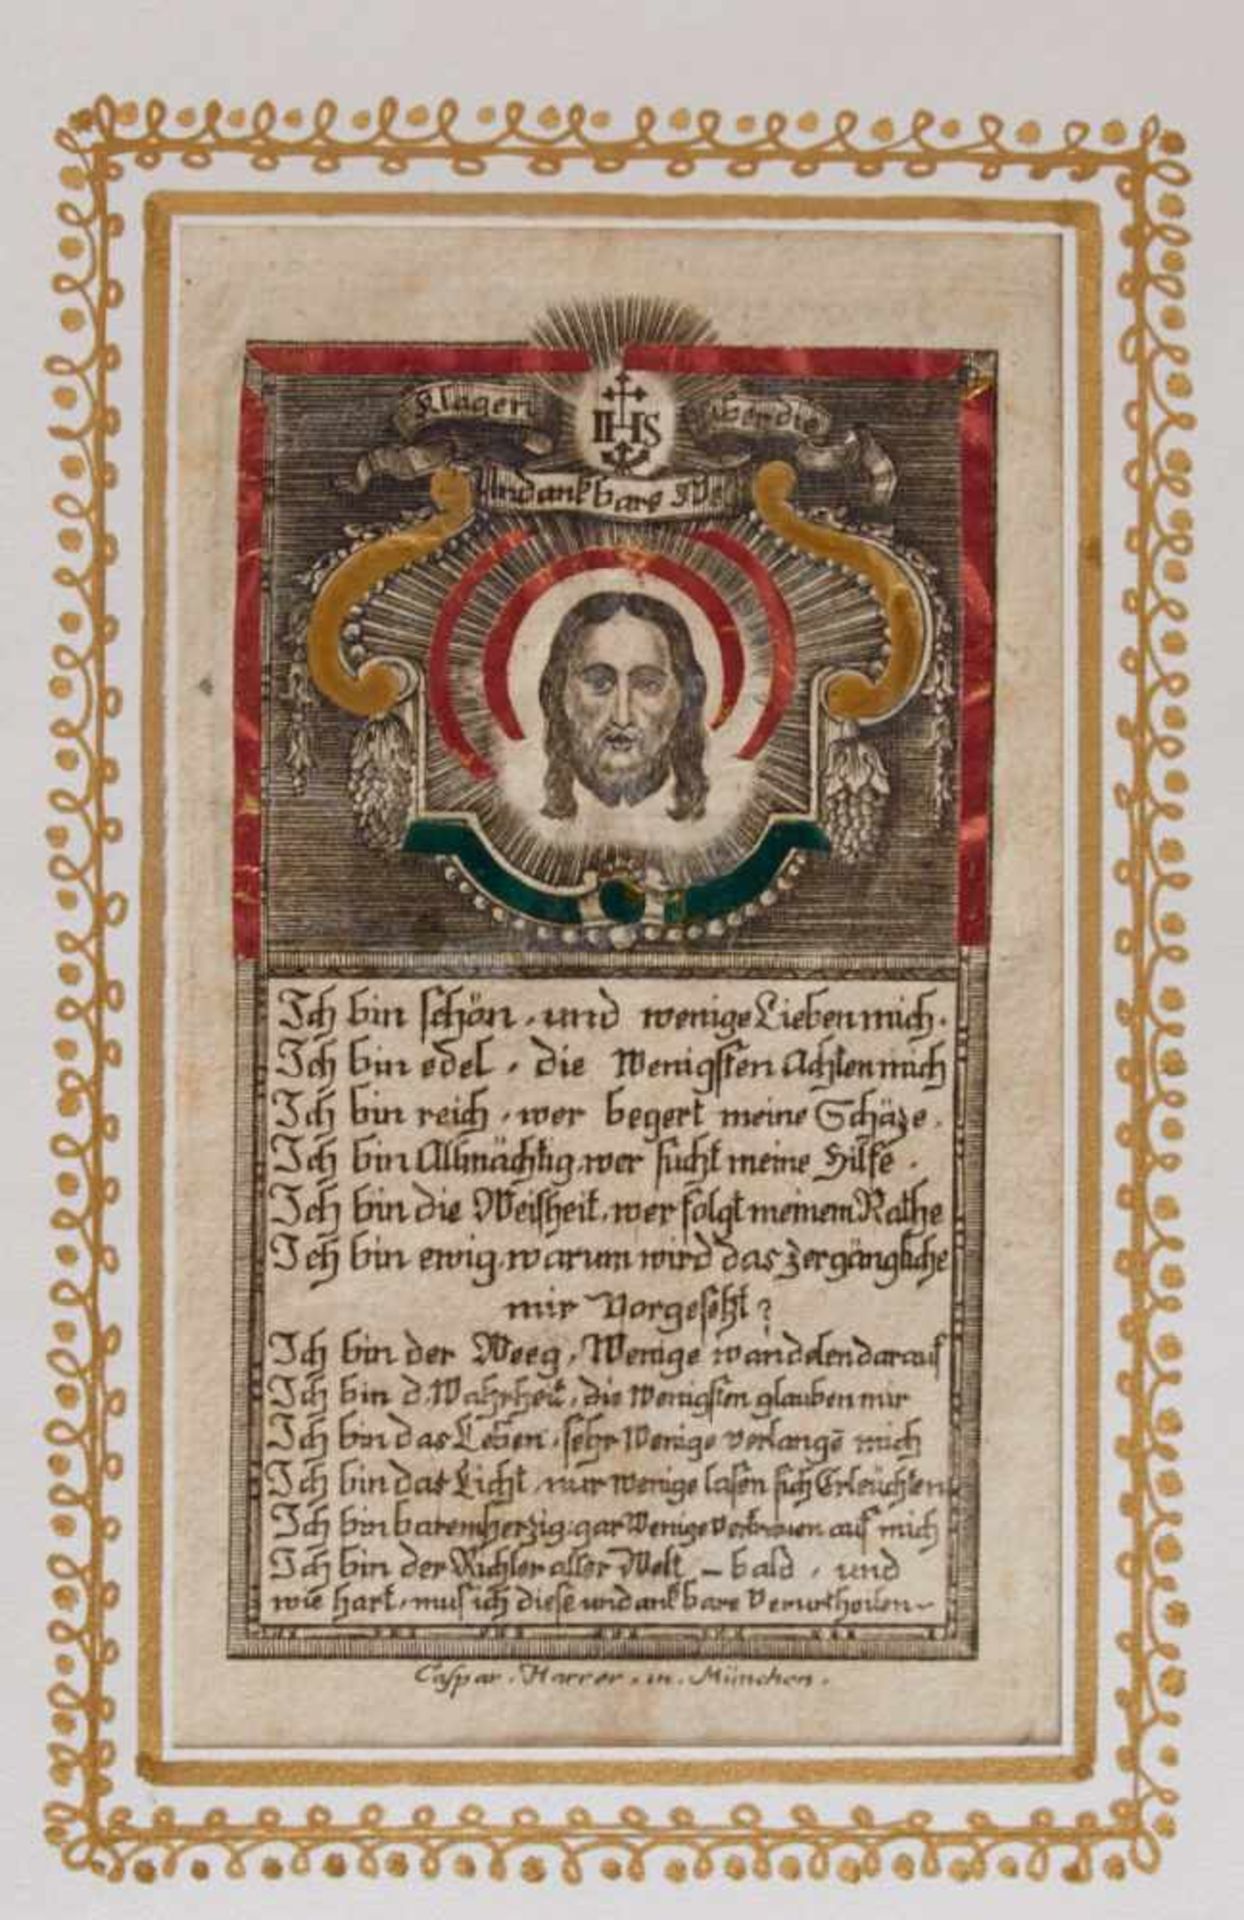 Klagen
IHS
über die
Undankbare Wel
Ich bin schön, und wenige Lieben mich.
Ich bin edel, die Wenigsten Achten mich
Ich bin reich, wer begert meine Schäze.
Ich bin Allmächtig, wer sucht meine Hilfe.
Ich bin die Weisheit, wer folgt meinem Rathe
Ich bin ewig, warum wird das zergängliche
mir Vorgesetzt?
Ich bin der Weeg, Wenige wandelen darauf
Ich bin d. Wahrheit, die Wenigsten glauben mir
Ich bin das Leben, sehr Wenige verlangē mich
Ich bin das Licht, nur wenige lasen sich Erleüchten
Ich bin baremherzig, gar Wenige vertrauen auf mich
Ich bin der Richter aller Welt – bald, und
wie hart, mus ich diese undankbare Verurtheilen
Caspar. Harrer. in. München.